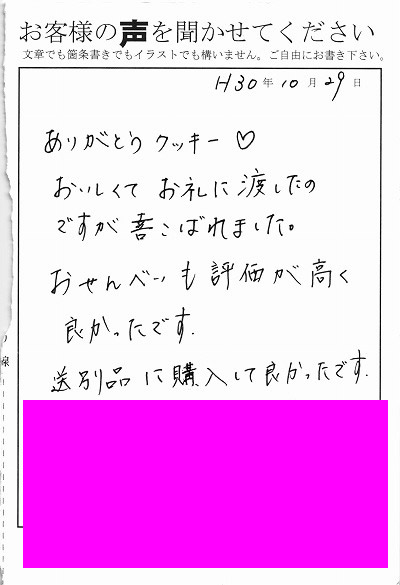 お客様の声を聞かせてください
文章でも箇条書きでもイラストでも構いません。ご自由にお書き下さい。
H30年10月29日
ありがとうクッキー♡
おいしくて お礼に渡したの
ですが喜こばれました。
おせんべいも評価が高く
良かったです.
送別品に購入して良かったです.